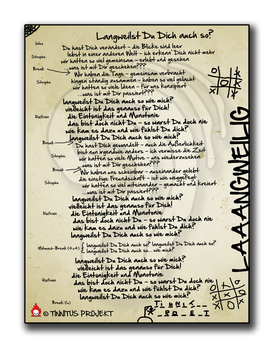 Langweilst Du Dich auch so?
Intro
Strophe Du hast Dich verändert - die Blicke sind leer
lebst in einer anderen Welt - ich erkenn' Dich nicht mehr
wir hatten so viel gemeinsam - erlebt und gesehen
Break ...was ist mit Dir geschehen???
Strophe Wir haben die Tage - gemeinsam verbracht
hingen ständig zusammen - haben so viel gelacht
wir hatten so viele Ideen - für uns Konzipiert
...was ist mit Dir passiert???
langweilst Du Dich auch so wie mich?
Refrain vielleicht ist das genau für Dich!
die Eintönigkeit und Monotonie
das bist doch nicht Du - so warst Du doch nie
wie kam es dazu und wie fühlst Du dich?
langweilst Du Dich auch so wie mich?
Break
Strophe Du hast Dich gewandelt - auch die Äußerlichkeit
bist nun irgendwie anders - vermisse die Zeit
wir hatten so viele Motive - uns wiederzusehen
...was ist mit Dir geschehen???
Strophe Wir haben uns scheinbar - auseinander gelebt
die einstige Freundschaft - ist wie weggefegt
wir hatten so viel miteinander - gemacht und kreiert
...was ist mit Dir passiert???
Refrain langweilst Du Dich auch so wie mich?
vielleicht ist das genau für Dich!
die Eintönigkeit und Monotonie
das bist doch nicht Du - so warst Du doch nie
wie kam es dazu und wie fühlst Du dich?
langweilst Du Dich auch so wie mich?
langweilst Du Dich auch so? langweilst Du Dich auch so?
langweilst Du Dich auch so? langweilst Du Dich auch so?
Refrain langweilst Du Dich auch so wie mich?
vielleicht ist das genau für Dich!
die Eintönigkeit und Monotonie
das bist doch nicht Du - so warst Du doch nie
wie kam es dazu und wie fühlst Du dich?
langweilst Du Dich auch so wie mich?
LAAANGWEILIG
© TINNITUS PROJEKT